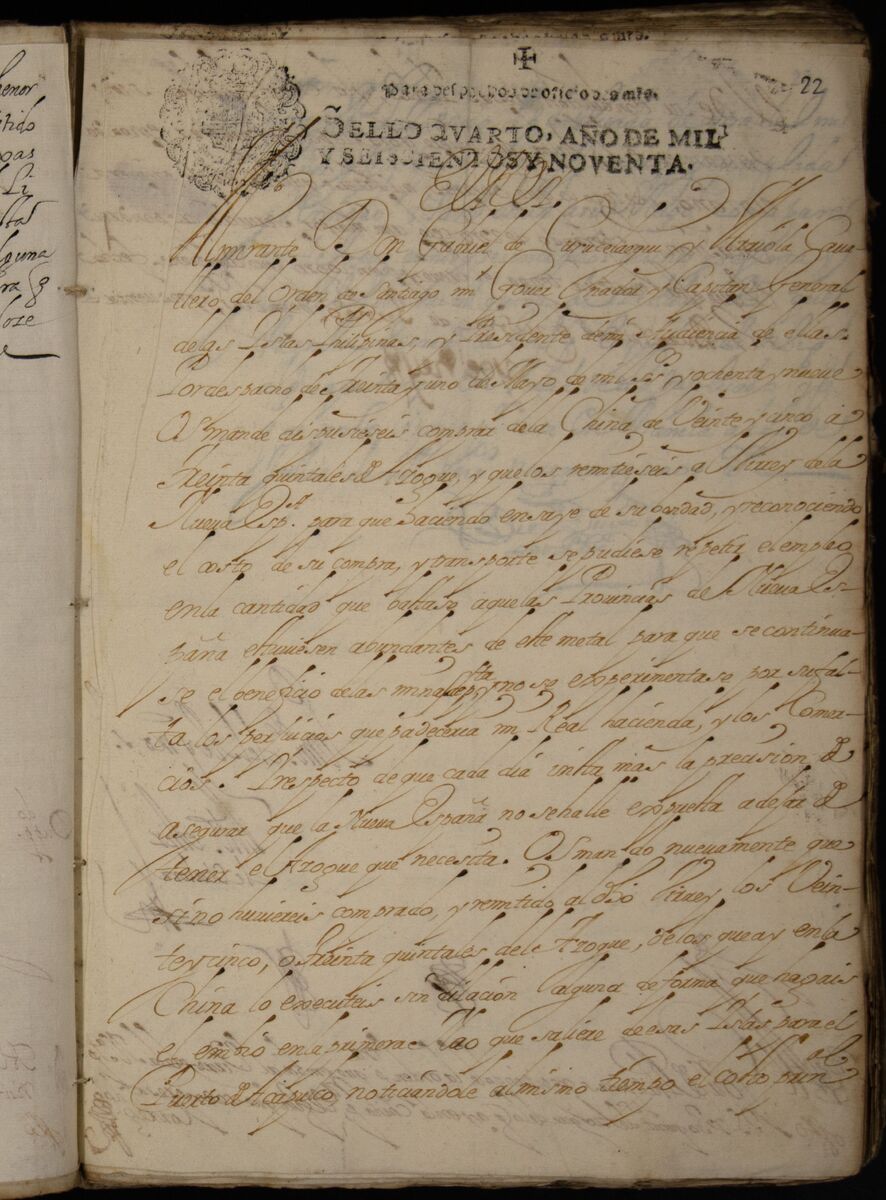 22
Para despachos de oficio dos mrs.
SELLO QVARTO, AÑO DE MIL
Y SEISCIENTOS Y NOVENTA.
El Rey.
Almirante Don Gabriel de Curucelaegui y Arriola Cava-
llero del Orden de Santiago mi Governador y Capitan General
de las Islas Philipinas, y Presidente de mi Audiencia de ellas.
Por despacho de treinta y uno de Mayo de mil y ochenta y nueve
os mande dispusieseis comprar de la China de Veinte y cinco a
treinta quintales de Azogue, y que los remitieseis al Virrey de la
Nueva Espa. para que haciendo ensaye de su bondad, y reconociendo
el costo de su compra, y transporte se pudiese repetir el empleo
en la cantidad que bastase a que las Provincias de Nueva Es-
paña estuviesen abundantes de este metal para que se continua-
se el beneficio de las minas de pta y no se experimentase por su fal-
ta, los perjuicios que padeceria mi Real hacienda, y los Comer-
cios. Y respecto de que cada dia insta mas la precision de
asegurar que la Nueva España no se halle expuesta a dejar de
tener el Azogue que necesita. Os mando nuevamente que
si no huviereis comprado, y remitido al dho Virrey los Vein-
te y cinco, o treinta quintales del Azogue, de los que ay en la
China lo executeis sin dilacion alguna de forma que hagais
el embio en la primera Nao que saliere de esas Islas para el
Puerto de Acapulco, noticiandole al mismo tiempo el costo prin